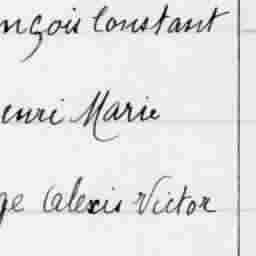 nçois Constant
enri Marie
ge Alexis Victor